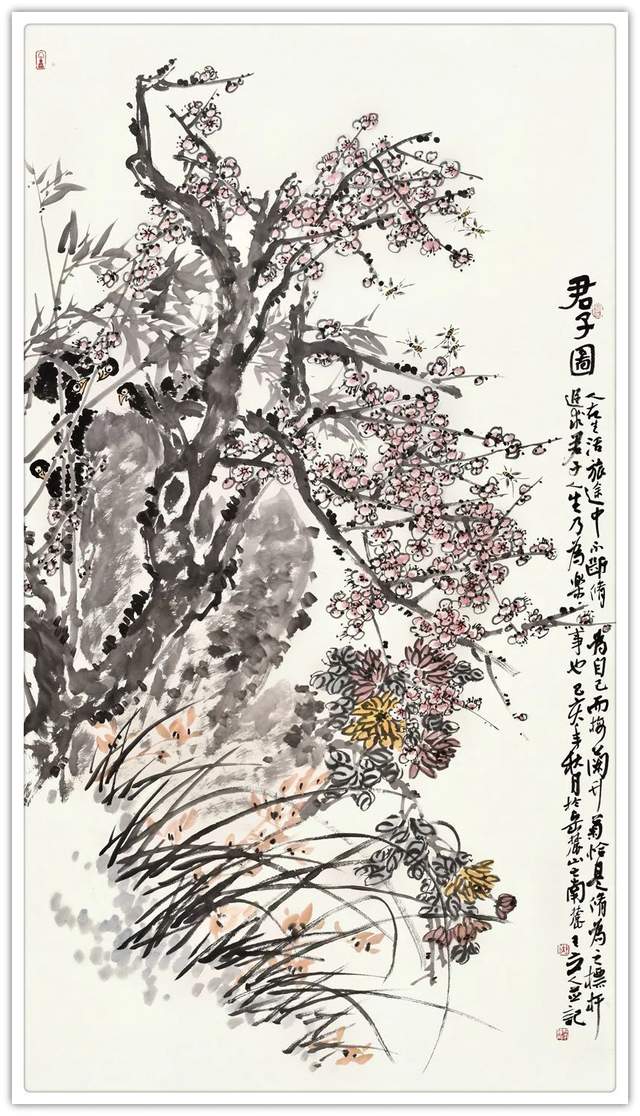 君子圖
人在生活旅途中不斷脩為自己而梅蘭竹菊恰是脩為之標杆
追求君子人生乃為樂事也己亥年秋月於岳麓山之南麓王立人並記